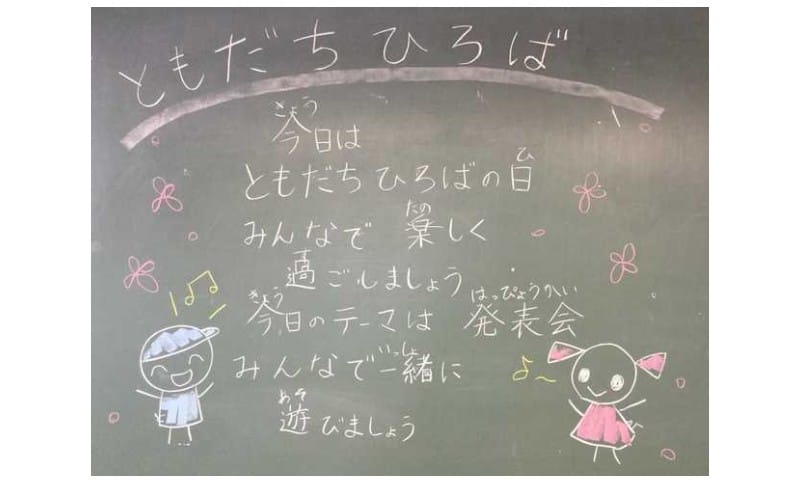 ともだちひろば
きょう
今日は
ひ
ともだちひろばの日
たの
みんなで 楽しく
す
過ごしましょう
きょう はっぴょうかい
今日のテーマは 発表会
いっしょ
みんなで一緒に
あそ
遊びましょう